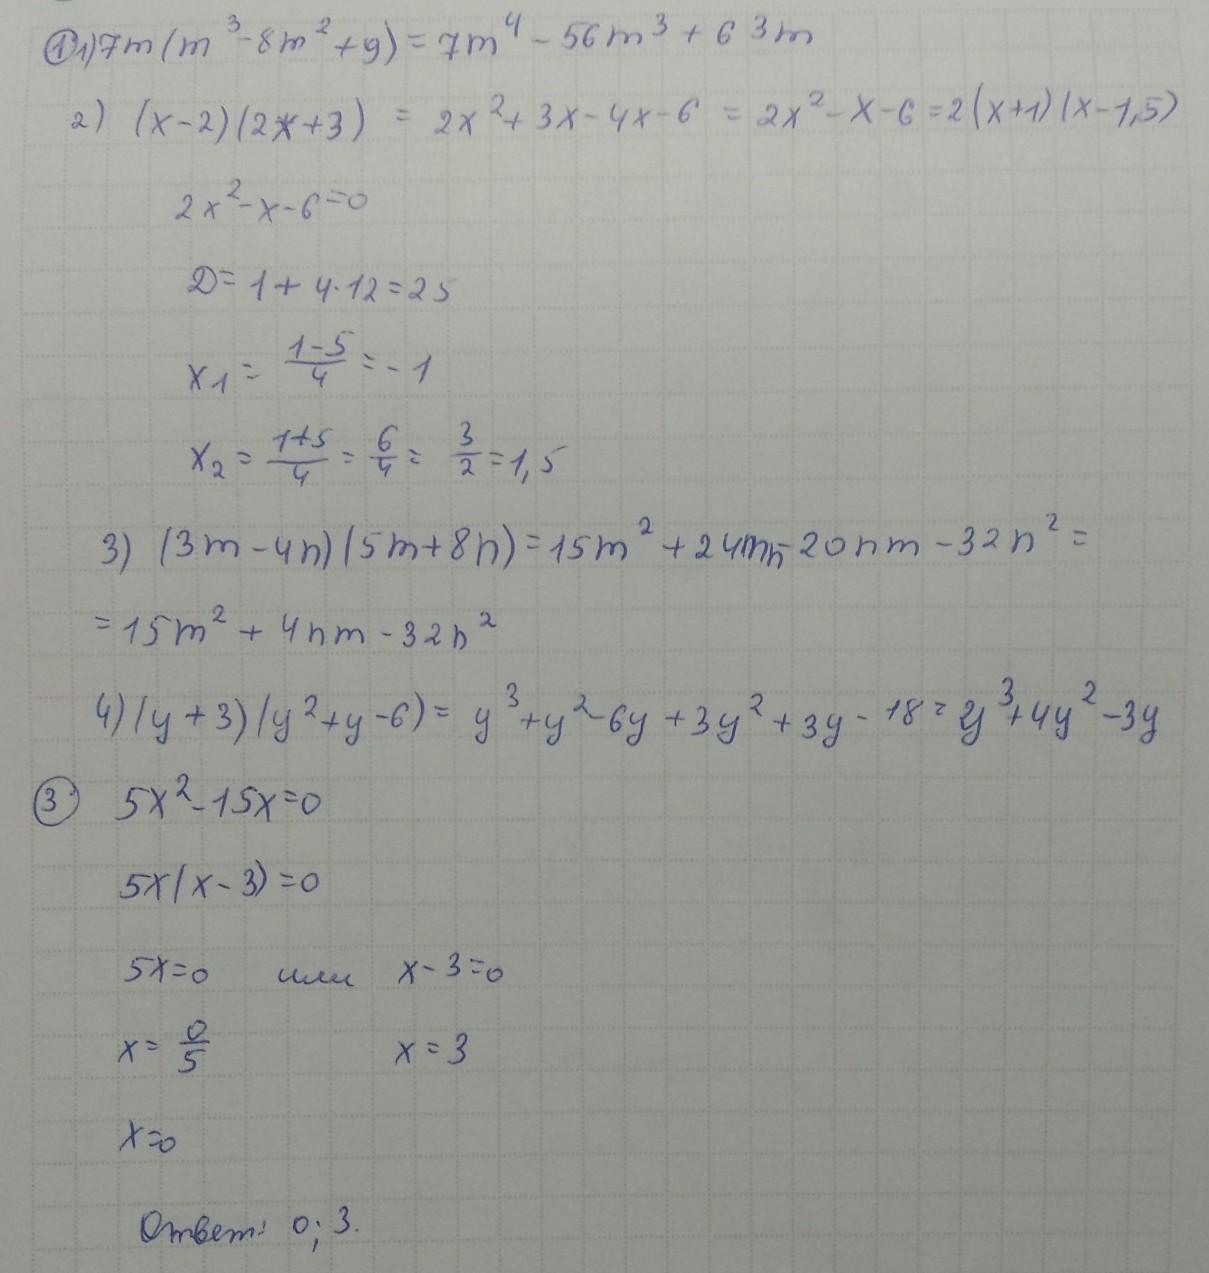 ① 1) 7m(m³-8m²+9) = 7m⁴ - 56m³ + 63m
2) (x-2)(2x+3) = 2x²+3x-4x-6 = 2x²-x-6 = 2(x+1)(x-1,5)
2x²-x-6=0
D = 1 + 4·12 = 25
x₁ = (1-5)/4 = -1
x₂ = (1+5)/4 = 6/4 = 3/2 = 1,5
3) (3m-4n)(5m+8n) = 15m² + 24mn - 20nm - 32n² =
= 15m² + 4nm - 32n²
4) (y+3)(y²+y-6) = y³+y²-6y+3y²+3y-18 = y³+4y²-3y
③ 5x²-15x=0
5x(x-3)=0
5x=0 или x-3=0
x = 0/5 x = 3
x=0
Ответ: 0; 3.